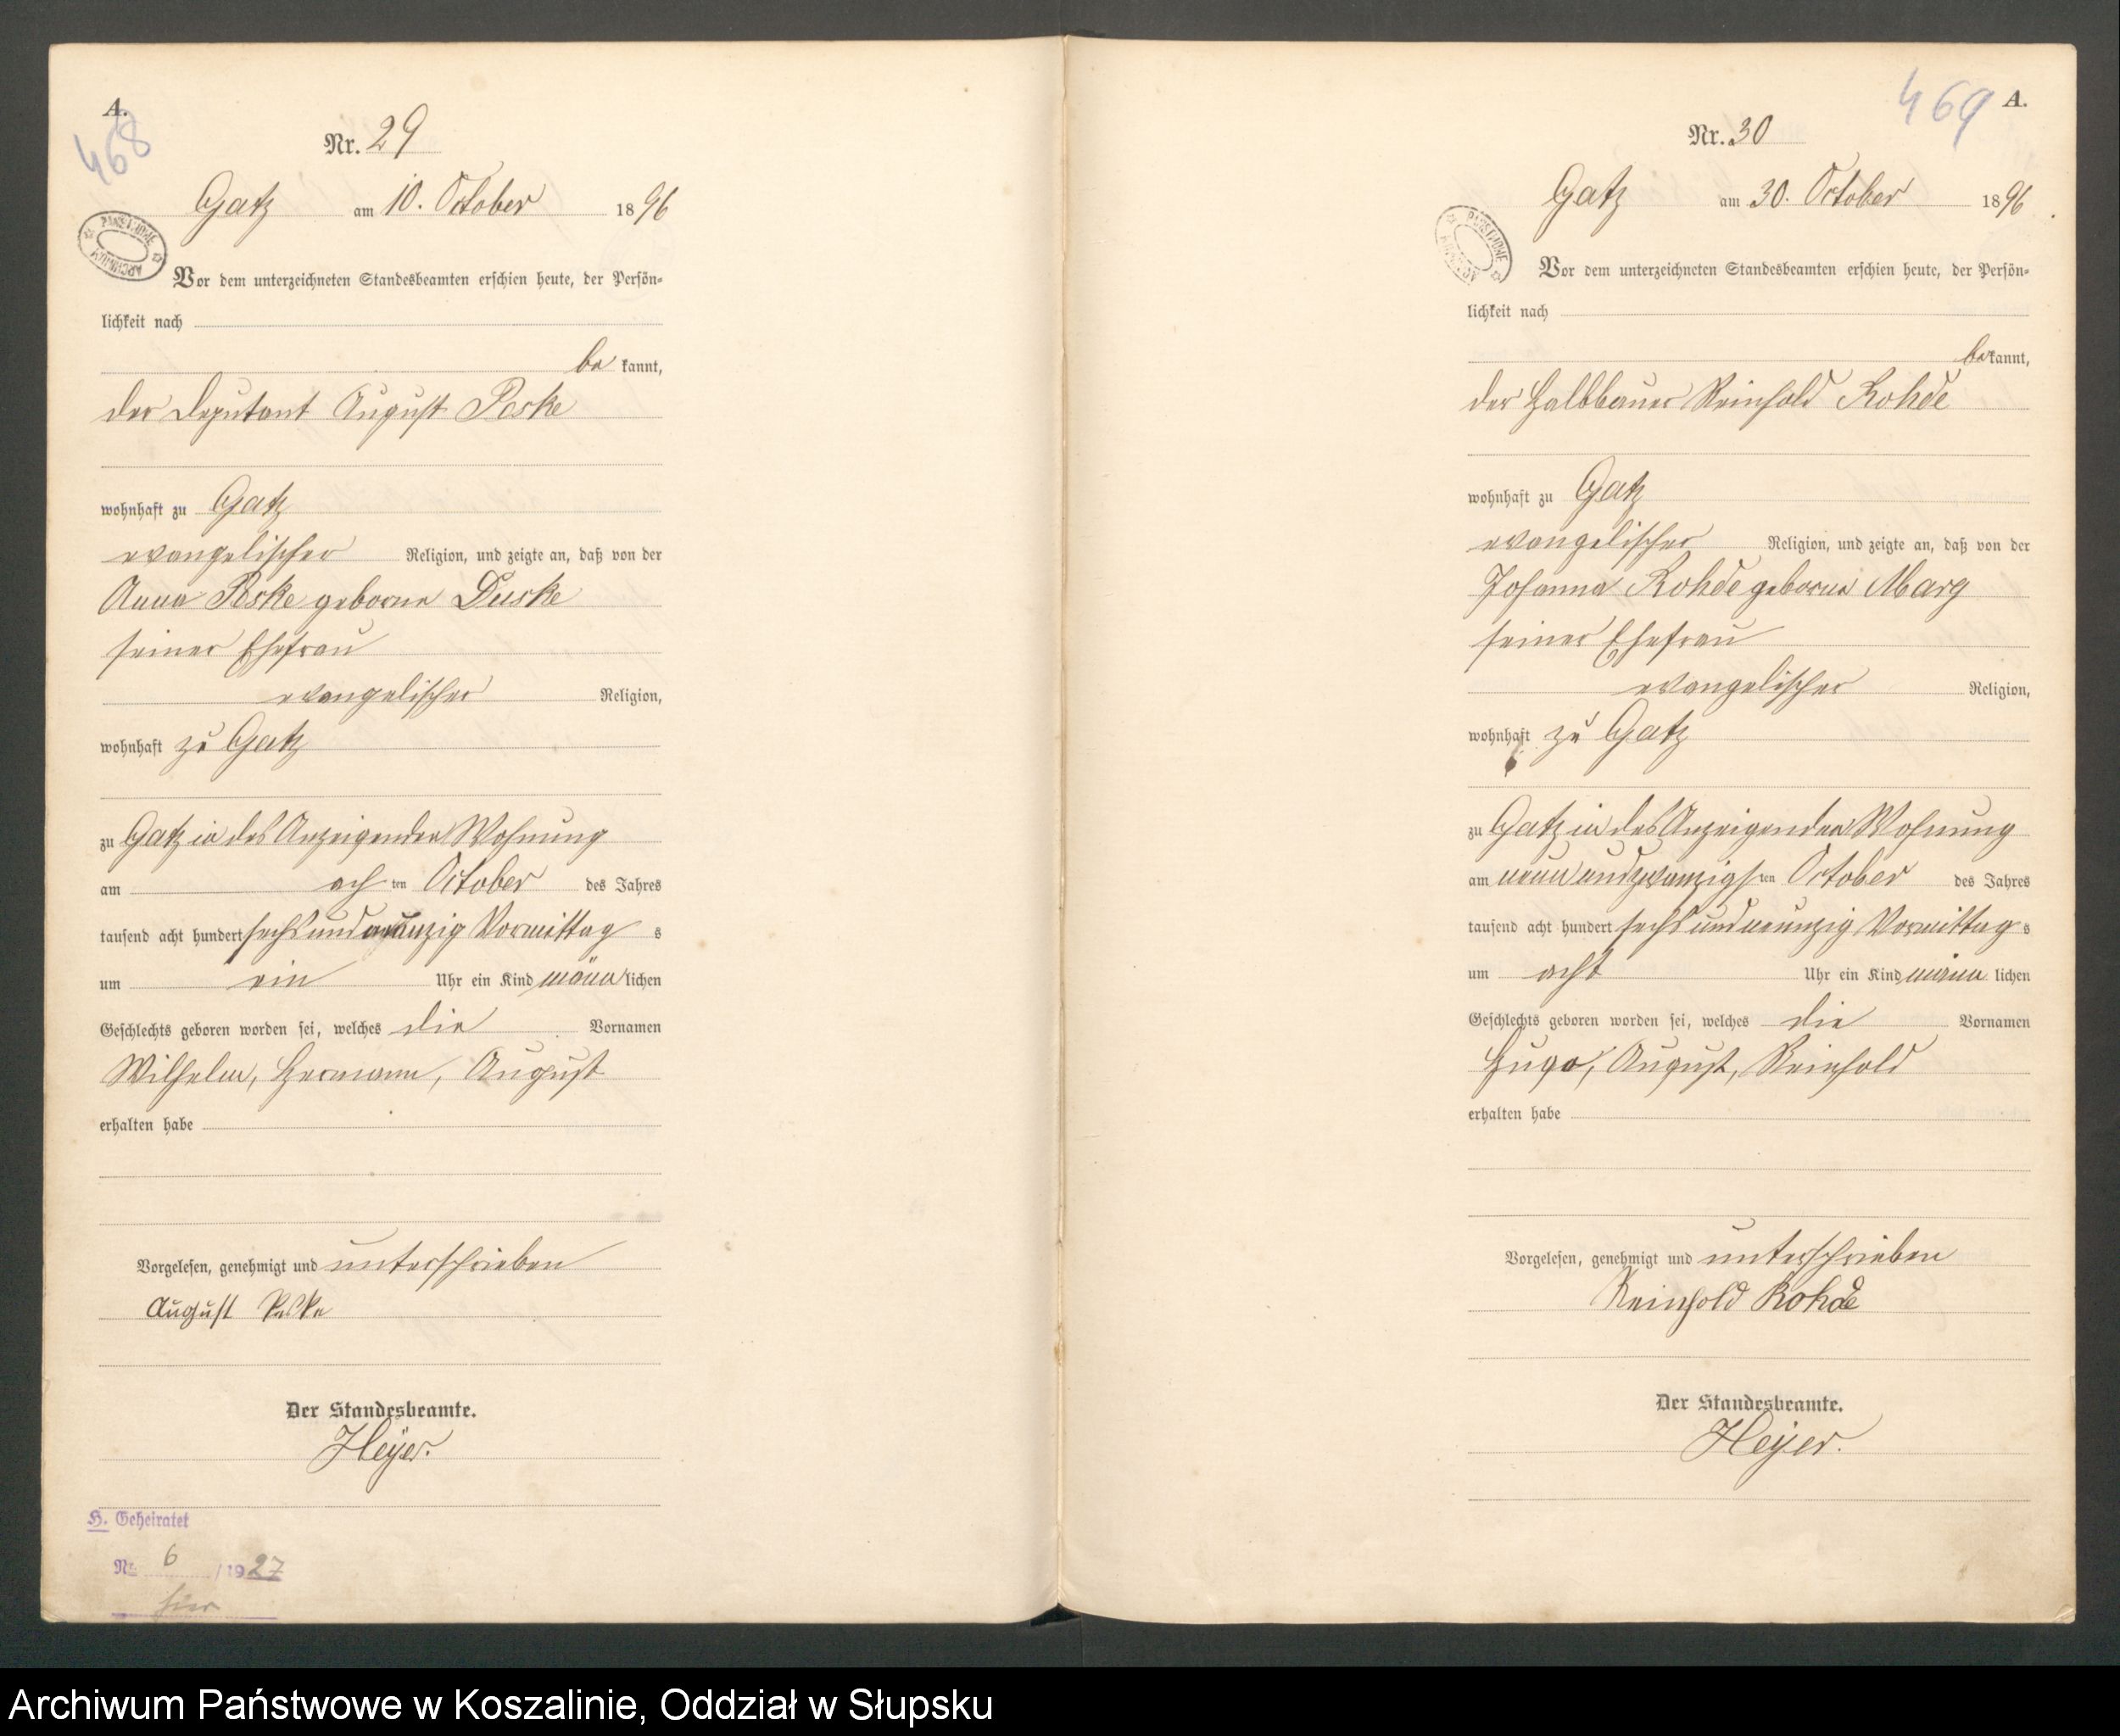 A.
468
Nr. 29
Gatz am 10. October 1896
PAŃSTWOWE ARCHIWUM
Vor dem unterzeichneten Standesbeamten erschien heute, der Persön-
lichkeit nach
be kannt,
der Deputant August Peske
wohnhaft zu Gatz
evangelischer Religion, und zeigte an, daß von der
Anna Peske geborne Duske
seiner Ehefrau
evangelischer Religion,
wohnhaft zu Gatz
zu Gatz in des Anzeigenden Wohnung
am ach ten October des Jahres
tausend acht hundert sechs und neunzig Vormittag s
um ein Uhr ein Kind männ lichen
Geschlechts geboren worden sei, welches die Vornamen
Wilhelm, Hermann, August
erhalten habe
Vorgelesen, genehmigt und unterschrieben
August Peske
Der Standesbeamte.
Heyer.
H. Geheiratet
Nr. 6 / 1927
hier
469 A.
Nr. 30
Gatz am 30. October 1896
PAŃSTWOWE ARCHIWUM
Vor dem unterzeichneten Standesbeamten erschien heute, der Persön-
lichkeit nach
be kannt,
der Halbbauer Reinhold Rohde
wohnhaft zu Gatz
evangelischer Religion, und zeigte an, daß von der
Johanna Rohde geborne Marg
seiner Ehefrau
evangelischer Religion,
wohnhaft zu Gatz
zu Gatz in des Anzeigenden Wohnung
am neun und zwanzigs ten October des Jahres
tausend acht hundert sechs und neunzig Vormittag s
um acht Uhr ein Kind männ lichen
Geschlechts geboren worden sei, welches die Vornamen
Hugo, August, Reinhold
erhalten habe
Vorgelesen, genehmigt und unterschrieben
Reinhold Rohde
Der Standesbeamte.
Heyer.
Archiwum Państwowe w Koszalinie, Oddział w Słupsku